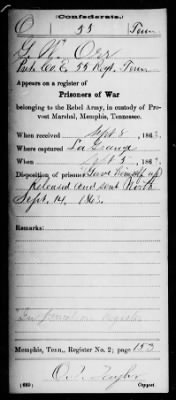 (Confederate.)
O 55 Tenn
G. W. Orr
Pvt. Co. E, 55 Regt. Tenn
Appears on a register of
Prisoners of War
belonging to the Rebel Army, in custody of Provost Marshal, Memphis, Tennessee.
When received Sept 8, 1863.
Where captured La Grange
When Sept 5, 186
Disposition of prisoner Gave himself up
Released and sent North
Sept. 14, 1863.
Remarks:
Memphis, Tenn., Register No. 2; page 153
(639) Copyist.